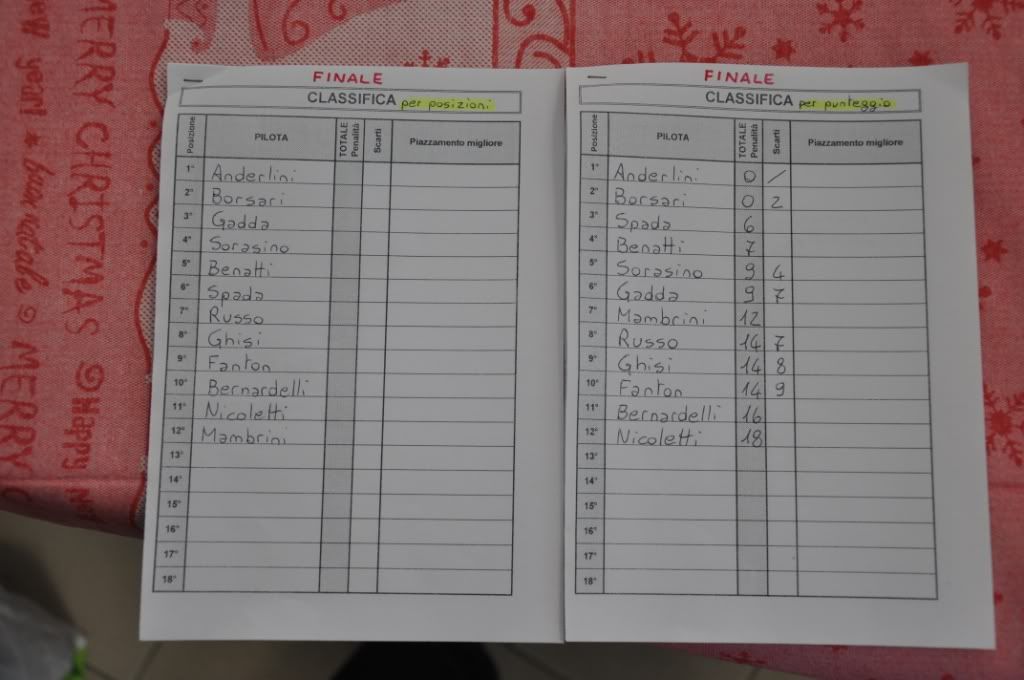 FINALE
CLASSIFICA per posizioni
Posizione PILOTA TOTALE Penalità Scarti Piazzamento migliore
1° Anderlini
2° Borsari
3° Gadda
4° Sorasino
5° Benatti
6° Spada
7° Russo
8° Ghisi
9° Fanton
10° Bernardelli
11° Nicoletti
12° Mambrini
13°
14°
15°
16°
17°
18°
FINALE
CLASSIFICA per punteggio
Posizione PILOTA TOTALE Penalità Scarti Piazzamento migliore
1° Anderlini 0 /
2° Borsari 0 2
3° Spada 6
4° Benatti 7
5° Sorasino 9 4
6° Gadda 9 7
7° Mambrini 12
8° Russo 14 7
9° Ghisi 14 8
10° Fanton 14 9
11° Bernardelli 16
12° Nicoletti 18
13°
14°
15°
16°
17°
18°
MERRY CHRISTMAS
Happy
year! ★ buon natale
MERRY